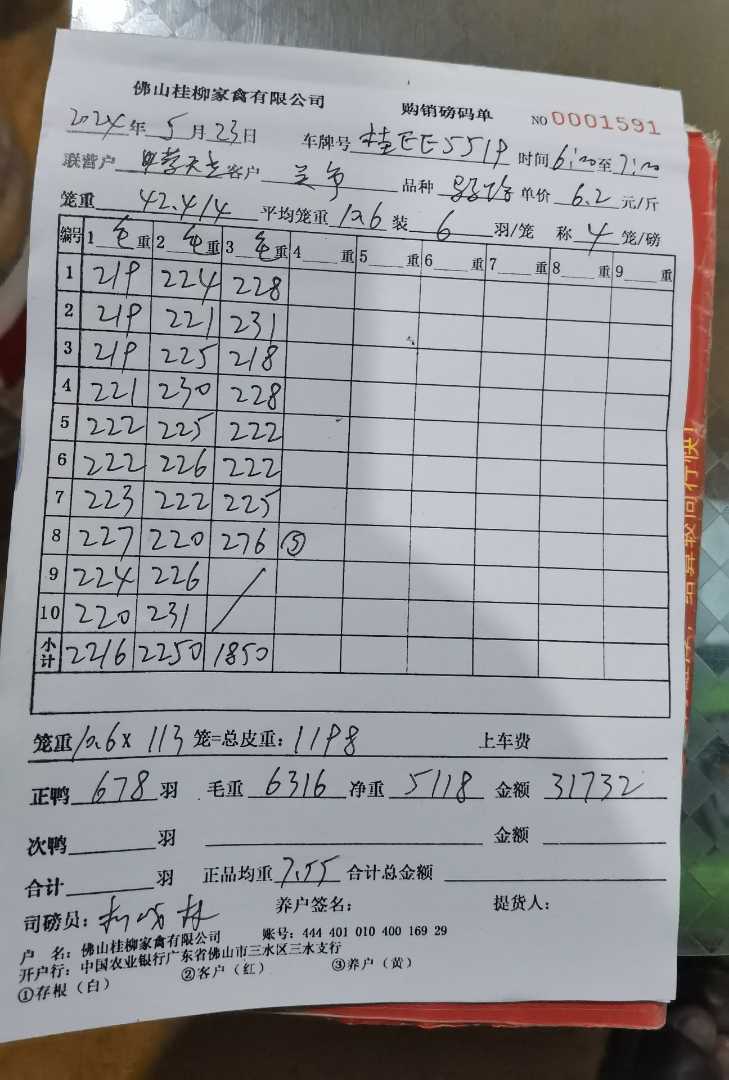 佛山桂柳家禽有限公司 购销磅码单 NO 0001591
2024年5月23日 车牌号 桂EE5519 时间6:00至7:00
联营户 客户 品种 单价 6.2 元/斤
笼重 42.4/4 平均笼重 10.6 装 6 羽/笼 称 4 笼/磅
编号 1 毛 重 2 毛 重 3 毛 重 4 重 5 重 6 重 7 重 8 重 9 重
1 219 224 228
2 219 221 231
3 219 225 218
4 221 230 228
5 222 225 222
6 222 226 222
7 223 222 225
8 227 220 276 ⑤
9 224 226
10 220 231
小计 2216 2250 1850
笼重 10.6 X 113 笼=总皮重: 1198 上车费
正鸭 678 羽 毛重 6316 净重 5118 金额 31732
次鸭 羽 金额
合计 羽 正品均重 7.55 合计总金额
司磅员: 养户签名: 提货人:
户 名: 佛山桂柳家禽有限公司 账号: 444 401 010 400 169 29
开户行: 中国农业银行广东省佛山市三水区三水支行
①存根(白) ②客户(红) ③养户(黄)